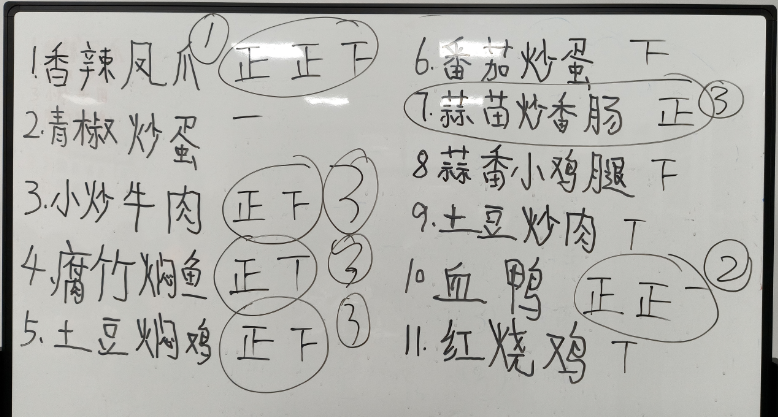 1.香辣凤爪 正正下 ①
2.青椒炒蛋 一
3.小炒牛肉 正下 ③
4.腐竹焖鱼 正丅 ③
5.土豆焖鸡 正下 ③
6.番茄炒蛋 下
7.蒜苗炒香肠 正 ③
8 蒜番小鸡腿 下
9.土豆炒肉 丅
10 血鸭 正正一 ②
11.红烧鸡 丅